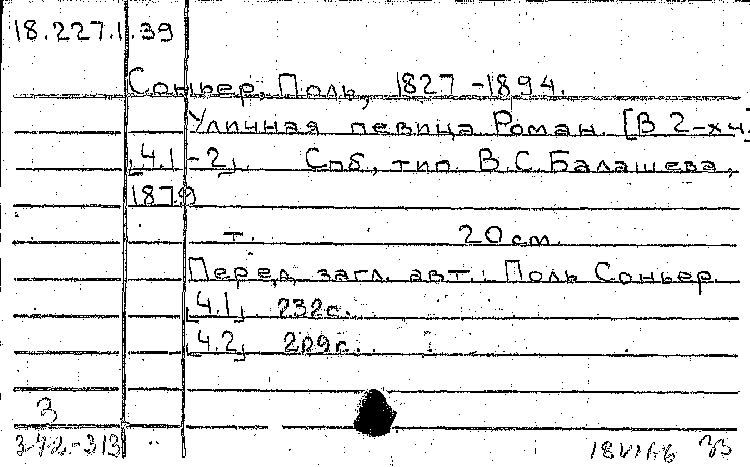 18.227.1.39
Соньер, Поль, 1827-1894.
Уличная певица. Роман. [В 2-х ч.]
[Ч.1-2]. Спб., тип. В.С. Балашева,
1879
т. 20 см.
Перед загл. авт.: Поль Соньер.
[Ч.1] 232с.
[Ч.2] 209с.
3